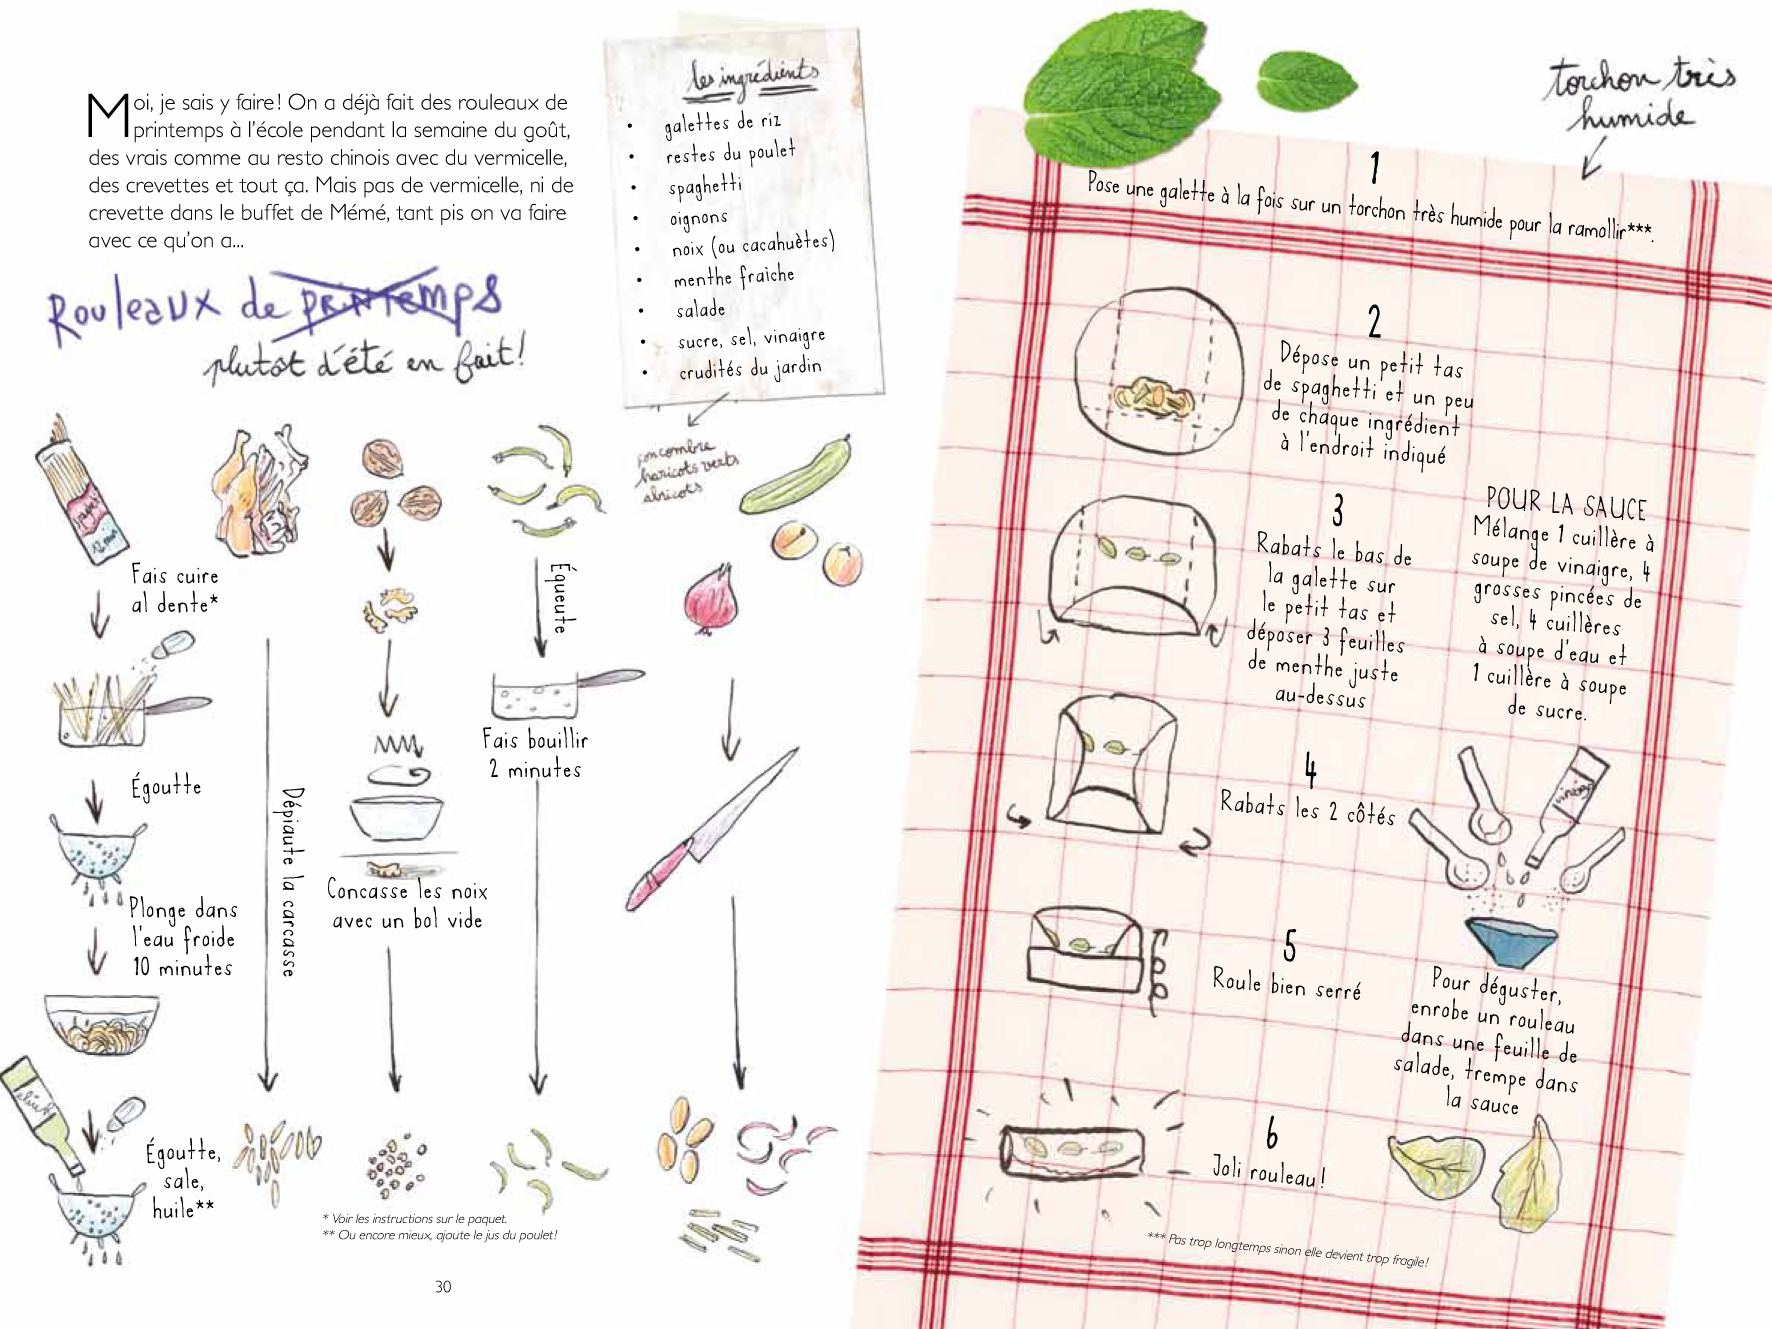 Moi, je sais y faire! On a déjà fait des rouleaux de
printemps à l'école pendant la semaine du goût,
des vrais comme au resto chinois avec du vermicelle,
des crevettes et tout ça. Mais pas de vermicelle, ni de
crevette dans le buffet de Mémé, tant pis on va faire
avec ce qu'on a...
Rouleaux de printemps
plutôt d'été en fait!
les ingrédients
• galettes de riz
• restes du poulet
• spaghetti
• oignons
• noix (ou cacahuètes)
• menthe fraiche
• salade
• sucre, sel, vinaigre
• crudités du jardin
concombre
haricots verts
abricots
Fais cuire
al dente*
Égoutte
Plonge dans
l'eau froide
10 minutes
Égoutte,
sale,
huile**
Dépiaute la carcasse
Concasse les noix
avec un bol vide
Équeute
Fais bouillir
2 minutes
* Voir les instructions sur le paquet.
** Ou encore mieux, ajoute le jus du poulet!
30
torchon très
humide
1
Pose une galette à la fois sur un torchon très humide pour la ramollir***.
2
Dépose un petit tas
de spaghetti et un peu
de chaque ingrédient
à l'endroit indiqué
3
Rabats le bas de
la galette sur
le petit tas et
déposer 3 feuilles
de menthe juste
au-dessus
4
Rabats les 2 côtés
5
Roule bien serré
6
Joli rouleau!
POUR LA SAUCE
Mélange 1 cuillère à
soupe de vinaigre, 4
grosses pincées de
sel, 4 cuillères
à soupe d'eau et
1 cuillère à soupe
de sucre.
Pour déguster,
enrobe un rouleau
dans une feuille de
salade, trempe dans
la sauce
*** Pas trop longtemps sinon elle devient trop fragile!